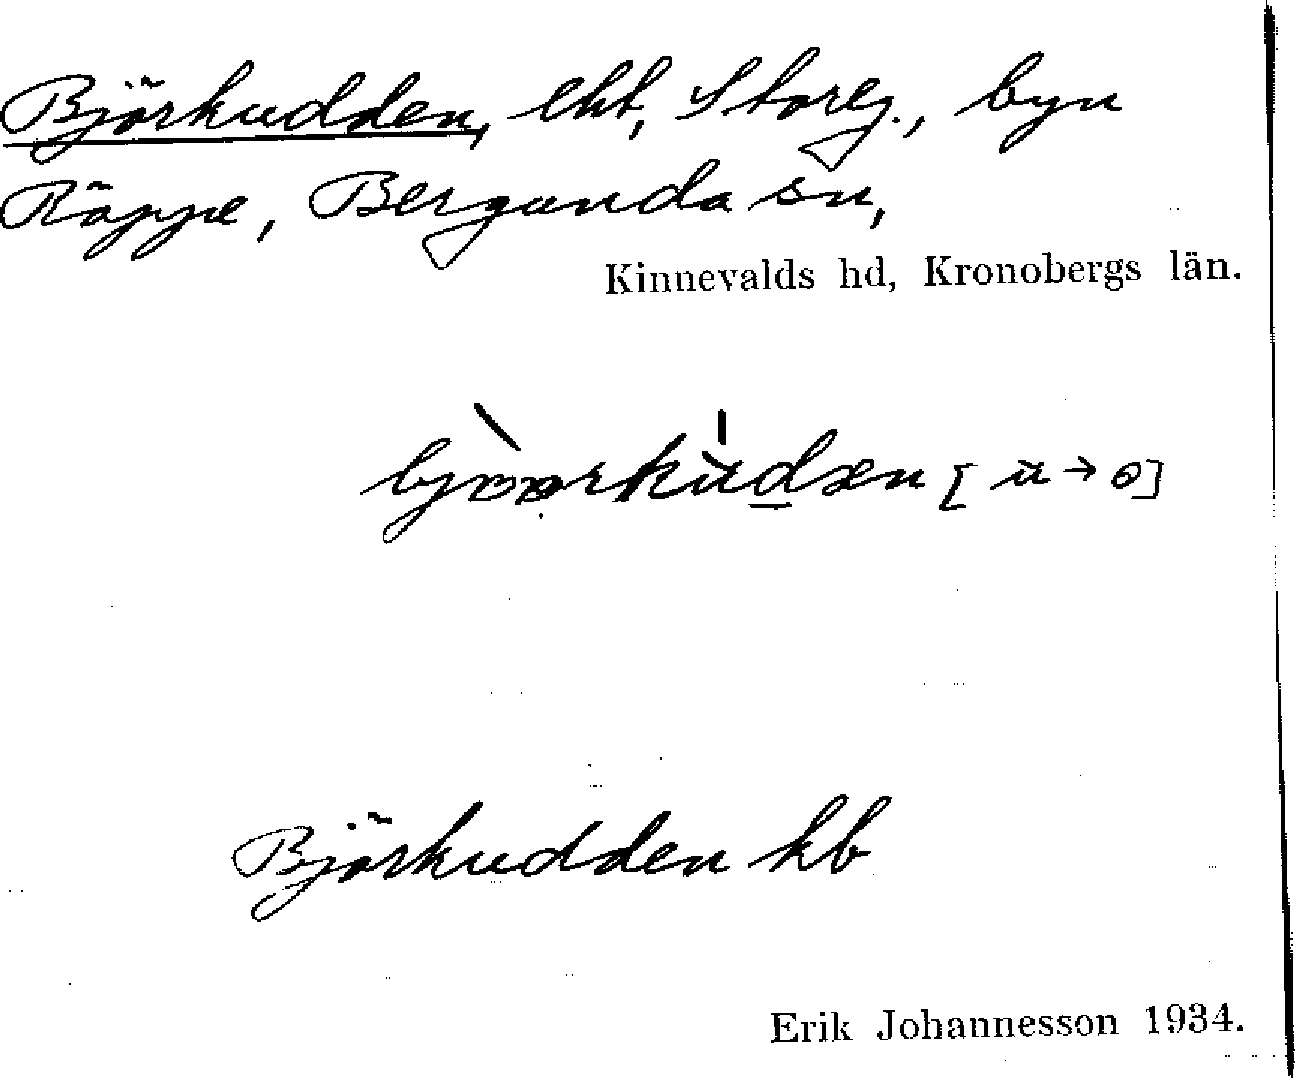 Björkudden, lht, Storg., byn
Räppe, Bergunda sn,
Kinnevalds hd, Kronobergs län.
Björkudden kb
Erik Johannesson 1934.